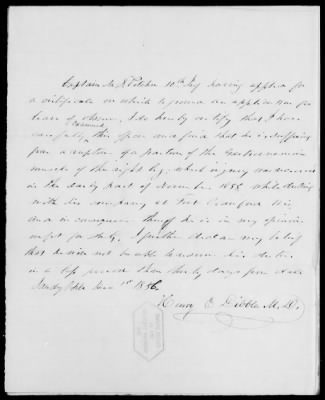 Captain M. E. Pitcher 10th Inf having applied for
a certificate on which to ground an application for
leave of absence, I do hereby certify that I have
carefully examined this officer and find that he is suffering
from a rupture of a portion of the Gastrocnemius
muscle of the right leg, which injury was received
in the early part of November 1855 while drilling
with his company at Fort Crawford Wis,
and in consequence thereof he is in my opinion
unfit for duty. I further declare my belief
that he will not be able to resume his duties
in a less period than thirty days from date
Sandy Hill June 1st 1856.
Henry E. Dibble M.D.